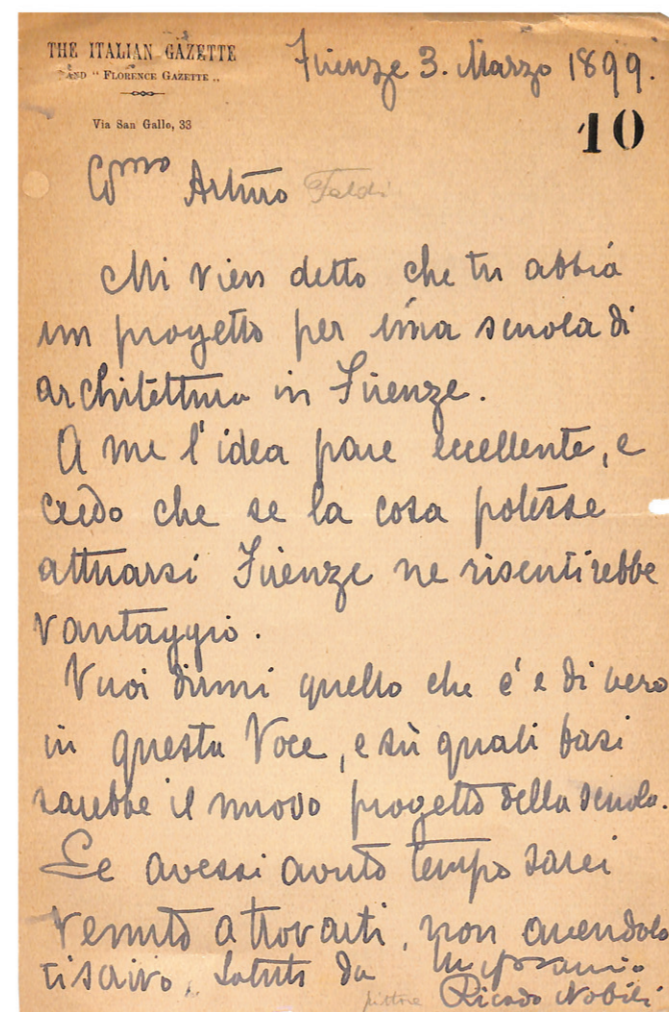 THE ITALIAN GAZETTE
AND "FLORENCE GAZETTE"
Via San Gallo, 33
Firenze 3. Marzo 1899.
10
C.mo Arturo Faldi
Mi vien detto che tu abbia
un progetto per una scuola di
architettura in Firenze.
A me l'idea pare eccellente, e
credo che se la cosa potesse
attuarsi Firenze ne risentirebbe
vantaggio.
Vuoi dirmi quello che c'è di vero
in questa Voce, e sù quali basi
sarebbe il nuovo progetto della scuola.
Se avessi avuto tempo sarei
venuto a trovarti, non avendolo
ti scrivo. Saluti da
pittore Ricardo Nobili